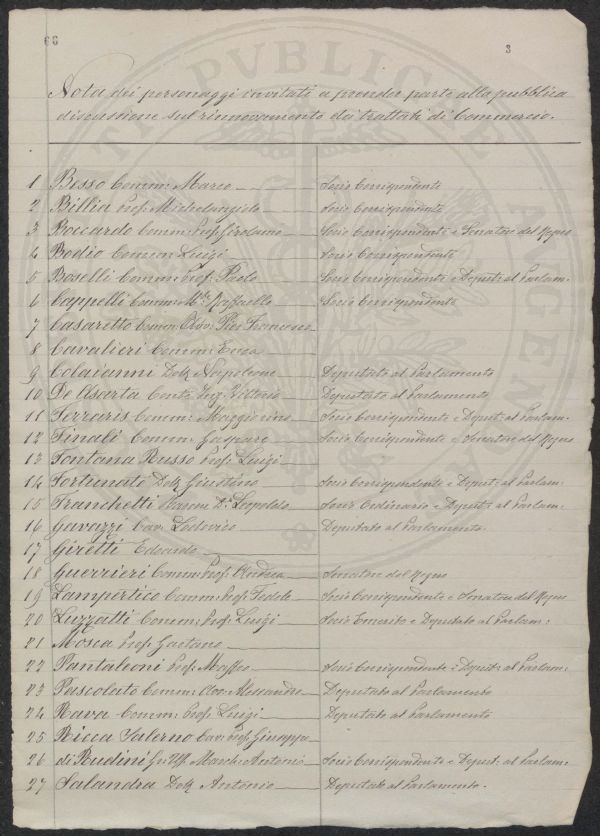 66
3
Nota dei personaggi invitati a prender parte alla pubblica
discussione sul rinnovamento dei trattati di Commercio.
1 Besso Comm: Marco Socio Corrispondente
2 Billia Prof. Michelangelo Socio Corrispondente
3 Boccardo Comm: Prof. Girolamo Socio Corrispondente e Senatore del Regno
4 Bodio Comm: Luigi Socio Corrispondente
5 Boselli Comm: Prof. Paolo Socio Corrispondente e Deput: al Parlam:
6 Cappelli Comm: Raffaello Socio Corrispondente
7 Casaretto Comm: Pier Francesco
8 Cavalieri Comm: Enea
9 Colaianni Dott. Napoleone Deputato al Parlamento
10 De Asarta Conte Ing. Vittorio Deputato al Parlamento
11 Ferraris Comm: Maggiorino Socio Corrispondente e Deput: al Parlam:
12 Finali Comm: Gaspare Socio Corrispondente e Senatore del Regno
13 Fontana Russo Prof. Luigi
14 Fortunato Dott. Giustino Socio Corrispondente e Deput: al Parlam:
15 Franchetti Barone Dr. Leopoldo Socio Ordinario e Deput: al Parlam:
16 Gavazzi Cav: Lodovico Deputato al Parlamento.
17 Giretti Edoardo
18 Guerrieri Comm: Prof. Senatore del Regno
19 Lampertico Comm: Prof. Fedele Socio Corrispondente e Senatore del Regno
20 Luzzatti Comm: Prof. Luigi Socio Emerito e Deputato al Parlam:
21 Mosca Prof. Gaetano
22 Pantaleoni Prof. Maffeo Socio Corrispondente e Deput: al Parlam:
23 Pascolato Comm: Avv. Alessandro Deputato al Parlamento
24 Rava Comm: Prof. Luigi Deputato al Parlamento
25 Ricca Salerno Cav: Prof. Giuseppe
26 di Rudinì Gr: Uff. March: Antonio Socio Corrispondente e Deput: al Parlam:
27 Salandra Dott. Antonio Deputato al Parlamento.